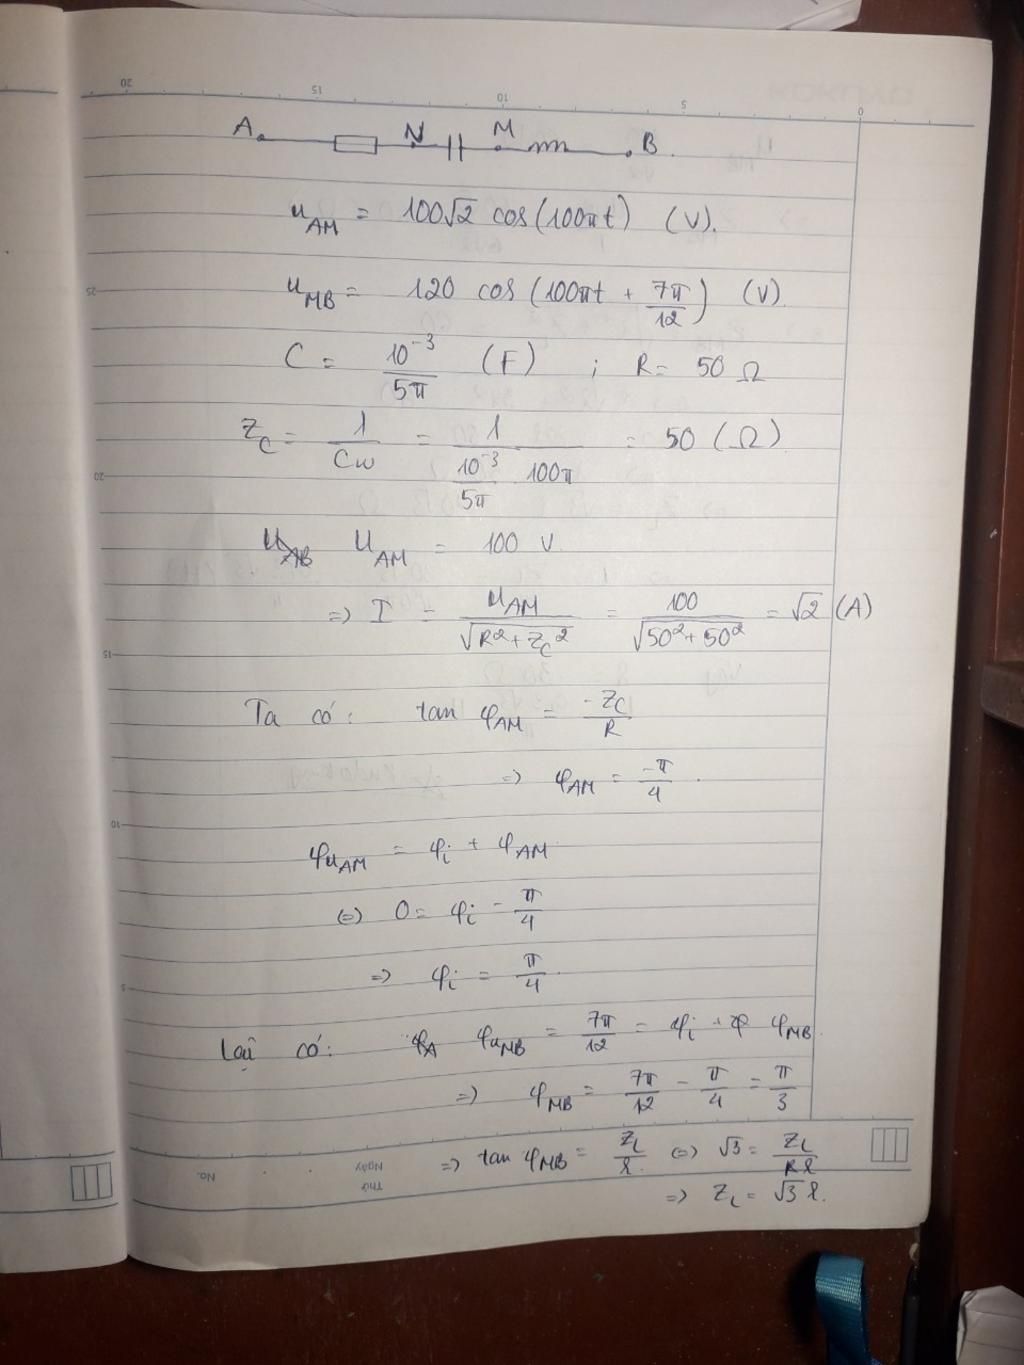 20 15 10 5 0
A N M B
u_AM = 100√2 cos(100πt) (V).
u_MB = 120 cos(100πt + 7π/12) (V)
25
C = 10^-3/5π (F) ; R = 50 Ω
Z_C = 1/Cω = 1/(10^-3/5π · 100π) = 50 (Ω)
20
U_AB U_AM = 100 V
=> I = U_AM/√(R²+Z_C²) = 100/√(50²+50²) = √2 (A)
15
Ta có: tan φ_AM = -Z_C/R
=> φ_AM = -π/4.
10
φu_AM = φi + φ_AM
(=) 0 = φi - π/4
=> φi = π/4.
5
Lại có: φ_A φu_MB = 7π/12 = φi + φ φ_MB
=> φ_MB = 7π/12 - π/4 = π/3
=> tan φ_MB = Z_L/r (=) √3 = Z_L/R r
No. Ngày Thứ
=> Z_L = √3 r.